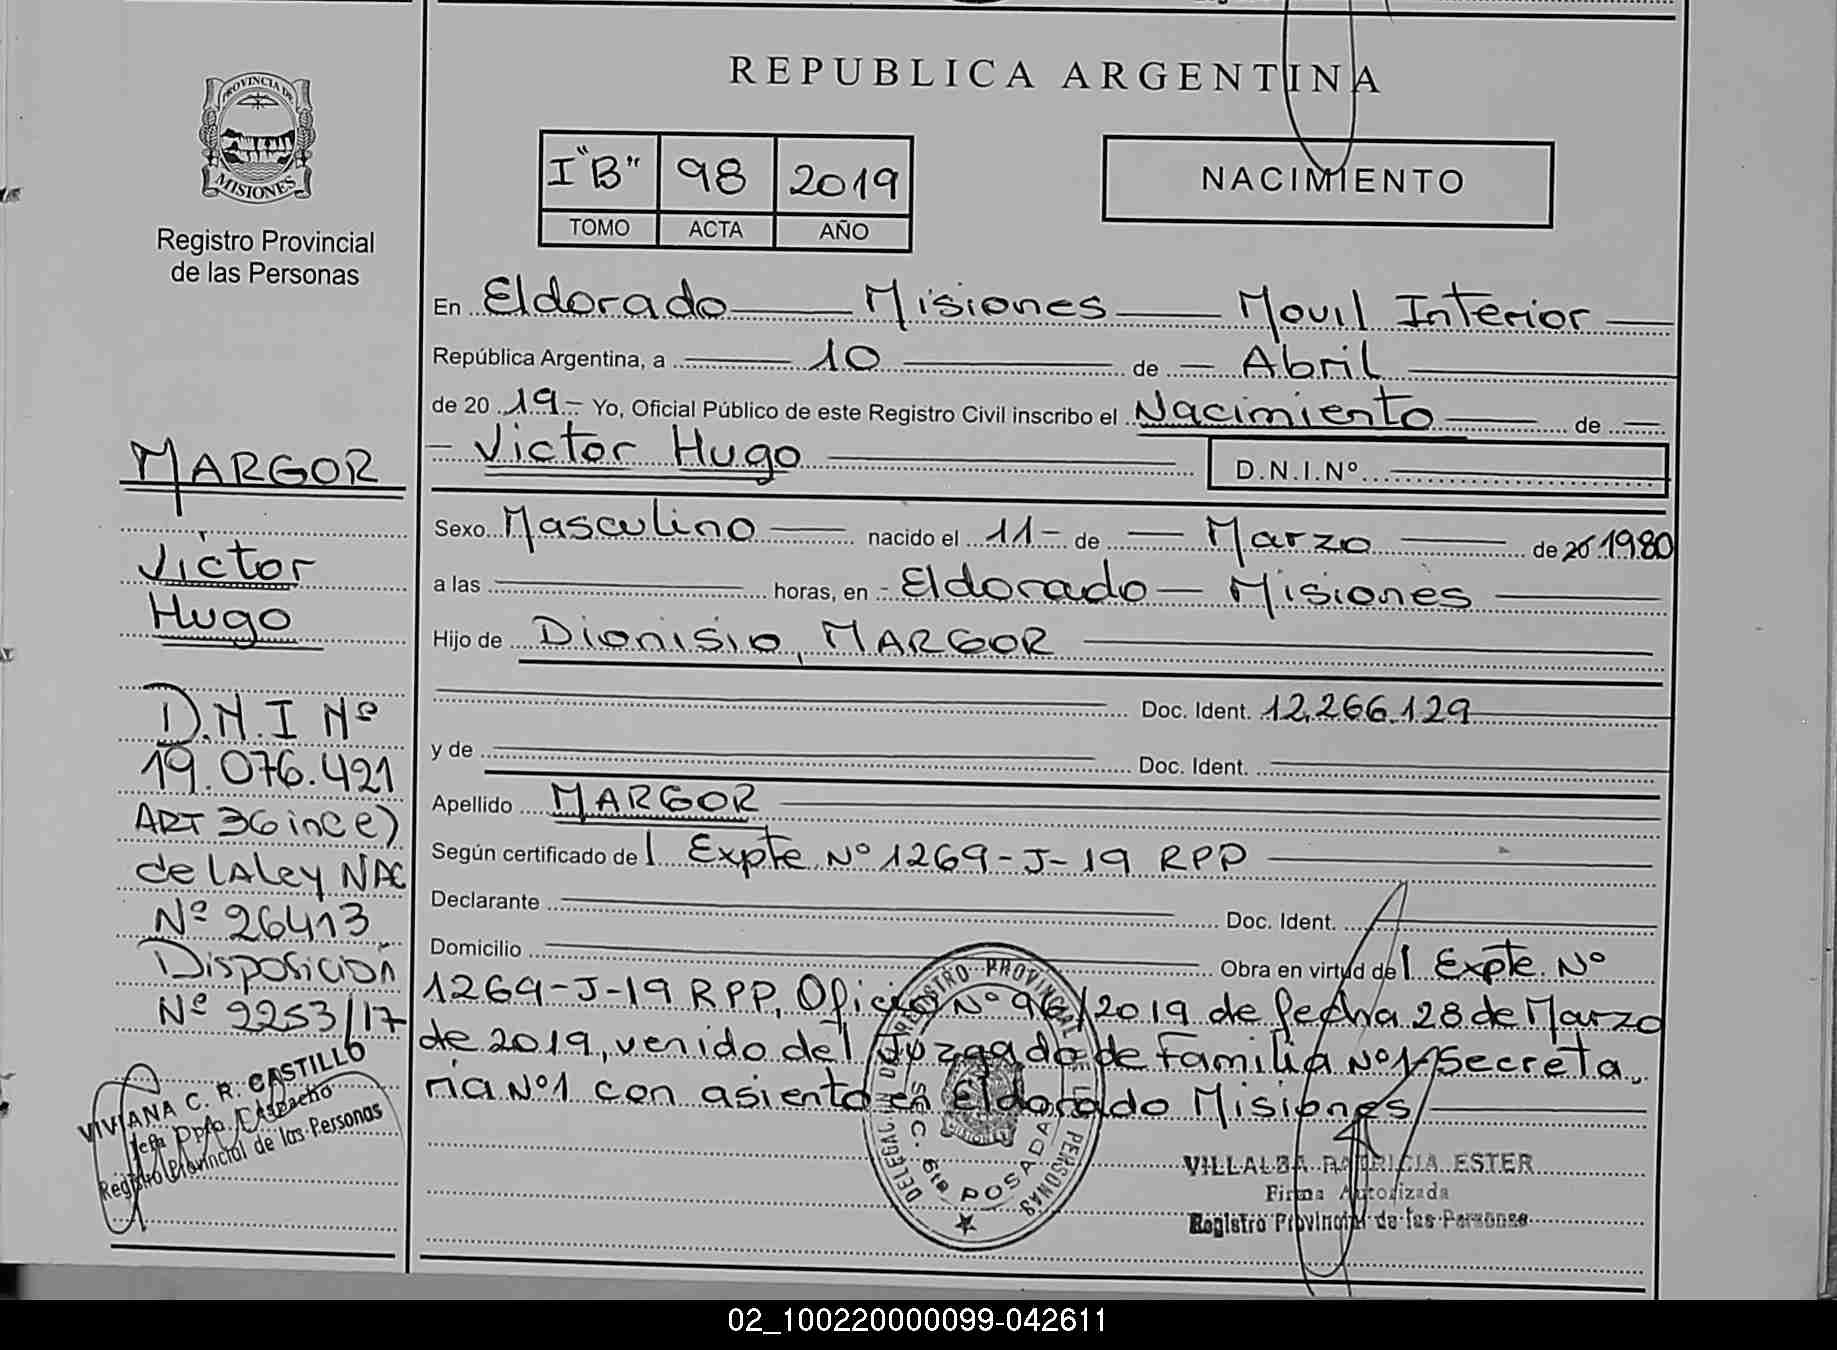 REPUBLICA ARGENTINA
PROVINCIA DE
MISIONES
Registro Provincial
de las Personas
I "B" 98 2019
TOMO ACTA AÑO
NACIMIENTO
En Eldorado — Misiones — Movil Interior —
República Argentina, a — 10 — de — Abril —
de 20 19 - Yo, Oficial Público de este Registro Civil inscribo el Nacimiento — de —
- Victor Hugo — D.N.I.Nº
Sexo Masculino — nacido el 11 - de — Marzo — de 20 1980
a las — horas, en - Eldorado — Misiones —
Hijo de Dionisio, MARGOR —
— Doc. Ident. 12.266.129
y de — Doc. Ident. —
Apellido MARGOR —
Según certificado de | Expte Nº 1269-J-19 RPP —
Declarante — Doc. Ident. —
Domicilio — Obra en virtud de | Expte. Nº
1269-J-19 RPP, Oficio Nº 96/2019 de fecha 28 de Marzo
de 2019, venido del Juzgado de Familia Nº1, Secreta
ria Nº1 con asiento en Eldorado Misiones —
MARGOR
Victor
Hugo
D.N.I Nº
19.076.421
ART 36 inc e)
de lA ley NAC
Nº 26413
Disposición
Nº 2253/17
VIVIANA C. R. CASTILLO
Jefa Dpto. Despacho
Registro Provincial de las Personas
DELEGACION DEL REGISTRO PROVINCIAL DE LAS PERSONAS
SEC. 6ta POSADAS
VILLALBA PATRICIA ESTER
Firma Autorizada
Registro Provincial de las Personas
02_100220000099-042611